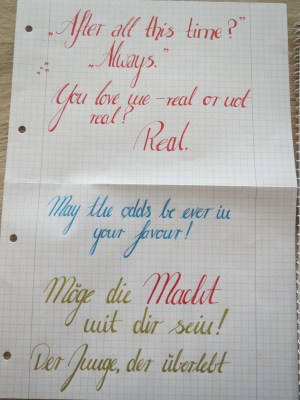 „After all this time?"
„Always."
You love me - real or not
real?
Real.
May the odds be ever in
your favour!
Möge die Macht
mit dir sein!
Der Junge, der überlebt